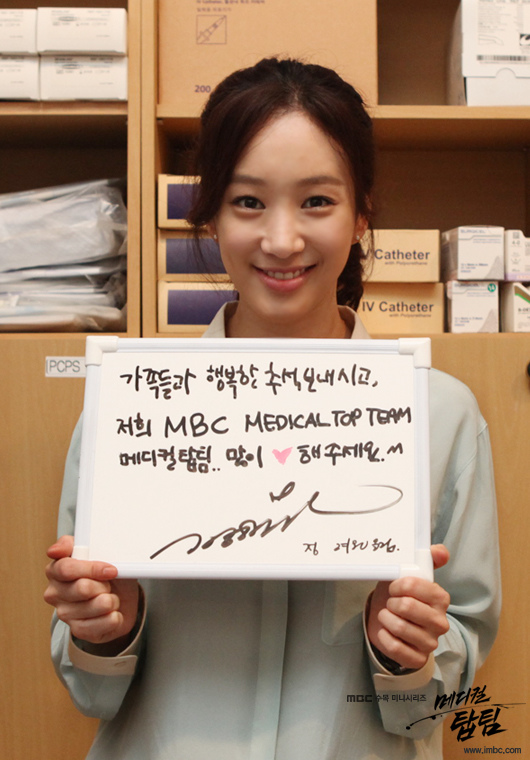 200
IV Catheter
with Polyurethane
IV Catheter
PCPS
가족들과 행복한 추석 보내시고,
저희 MBC MEDICAL TOP TEAM
메디컬탑팀.. 많이 ♥ 해주세요.^^
정 려원 올림.
MBC 수목 미니시리즈
메디컬
탑팀
www.imbc.com